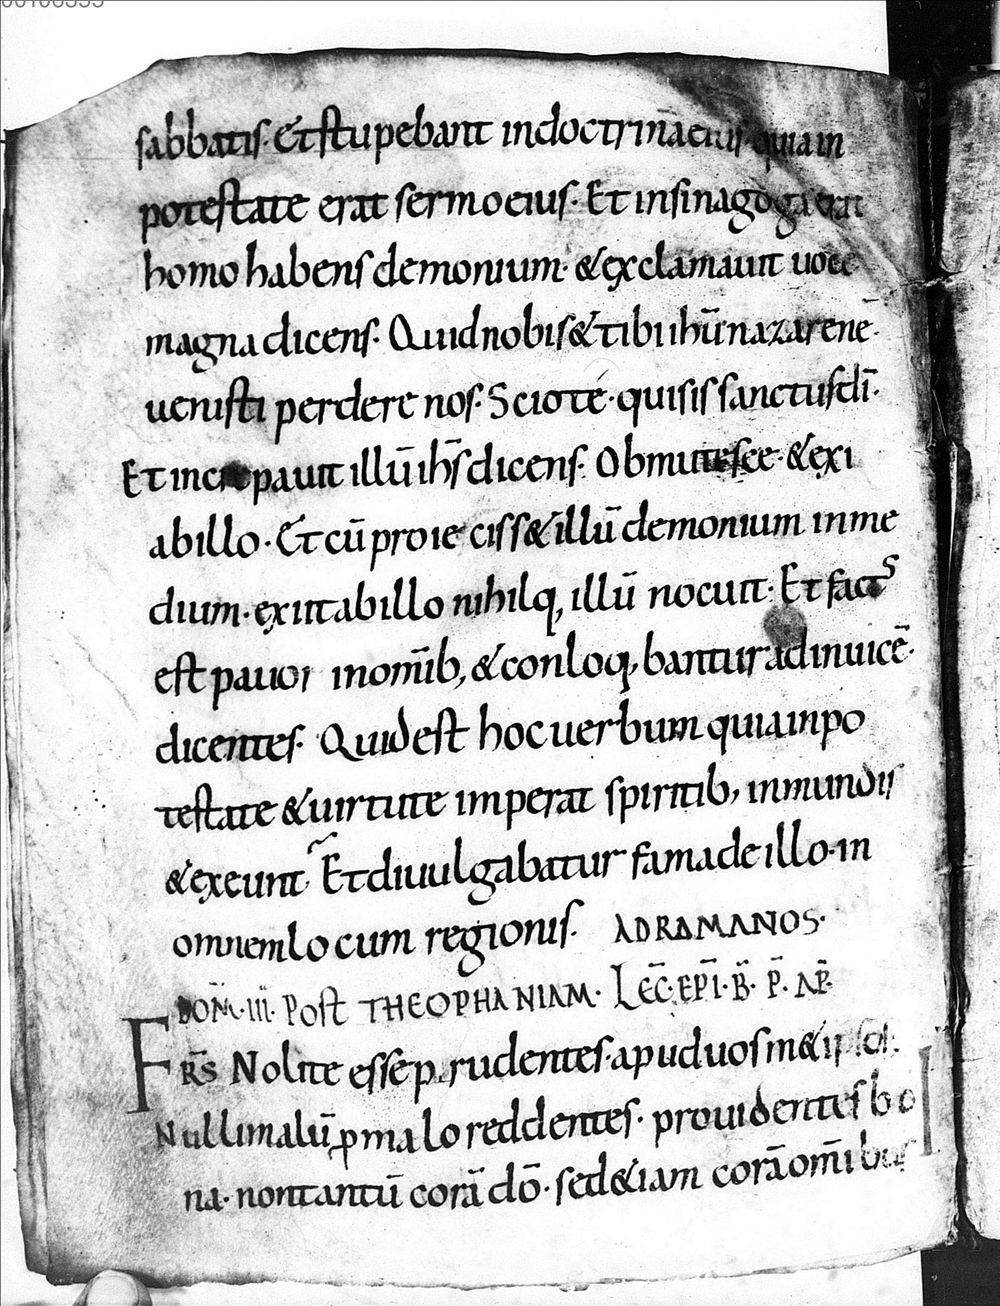 sabbatis. Et stupebant in doctrina eius. quia in
potestate erat sermo eius. Et in sinagoga erat
homo habens demonium. & exclamauit uoce
magna dicens. Quid nobis & tibi ihū nazarene.
uenisti perdere nos. Scio te. qui sis sanctus dī.
Et increpauit illū ihs̄ dicens. Obmutesce. & exi
ab illo. Et cū proieciss& illū demonium in me
dium. exiit ab illo nihilq, illū nocuit. Et factˢ
est pauor in om̄ib, & conloq,bantur ad inuicē.
dicentes. Quid est hoc uerbum quia in po
testate & uirtute imperat spiritib, inmundis
& exeunt. Et diuulgabatur fama de illo. in
omnem locum regionis. ADRAMANOS.
DOM̄. III. Post THEOPHANIAM. LEC̄. EPĪ. B̄. P̄. AP̄.
FRS̄ Nolite esse prudentes. apud uosm&ipsos.
Nulli malū ꝓ malo reddentes. prouidentes bo
na. non tantū corā dō. sed &iam corā om̄ibus